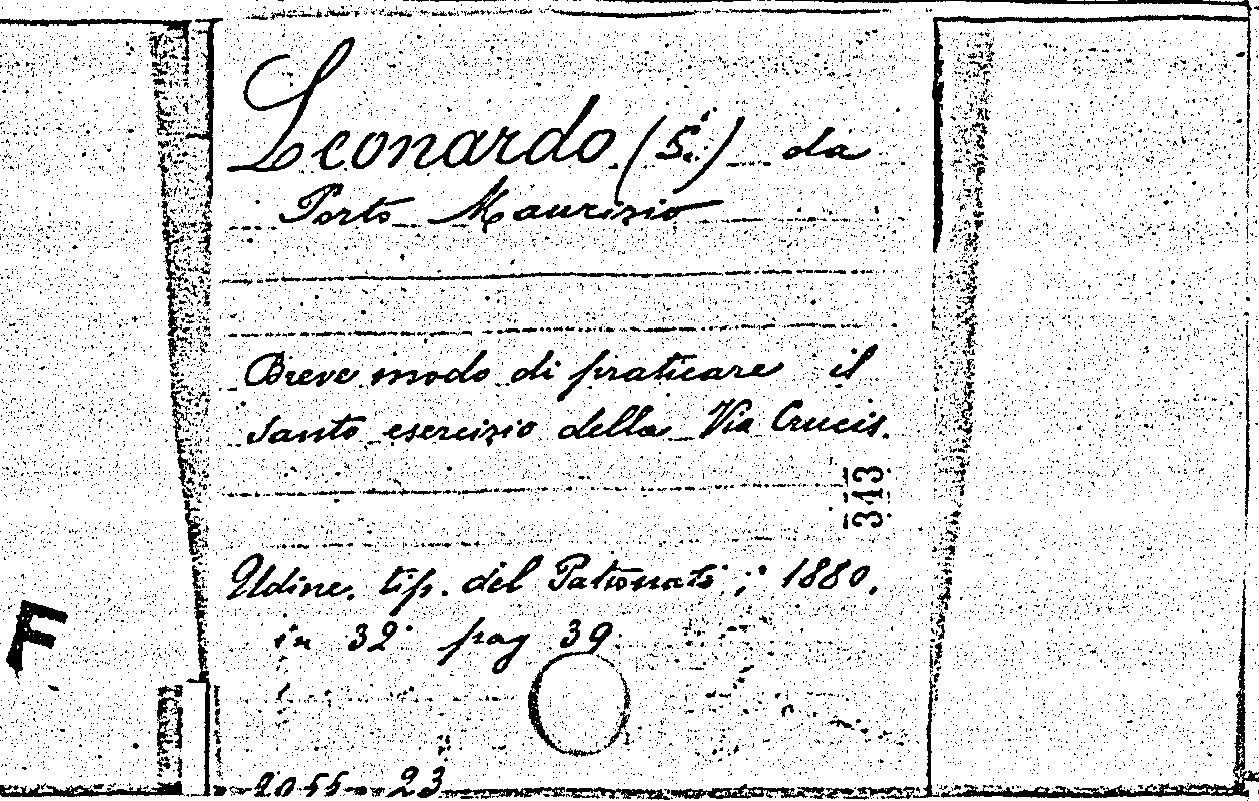 Leonardo (S.) da
Porto Maurizio
Breve modo di praticare il
santo esercizio della Via Crucis.
343
Udine. tip. del Patronato ; 1880.
in 32° pag 39.
F
2055 - 23